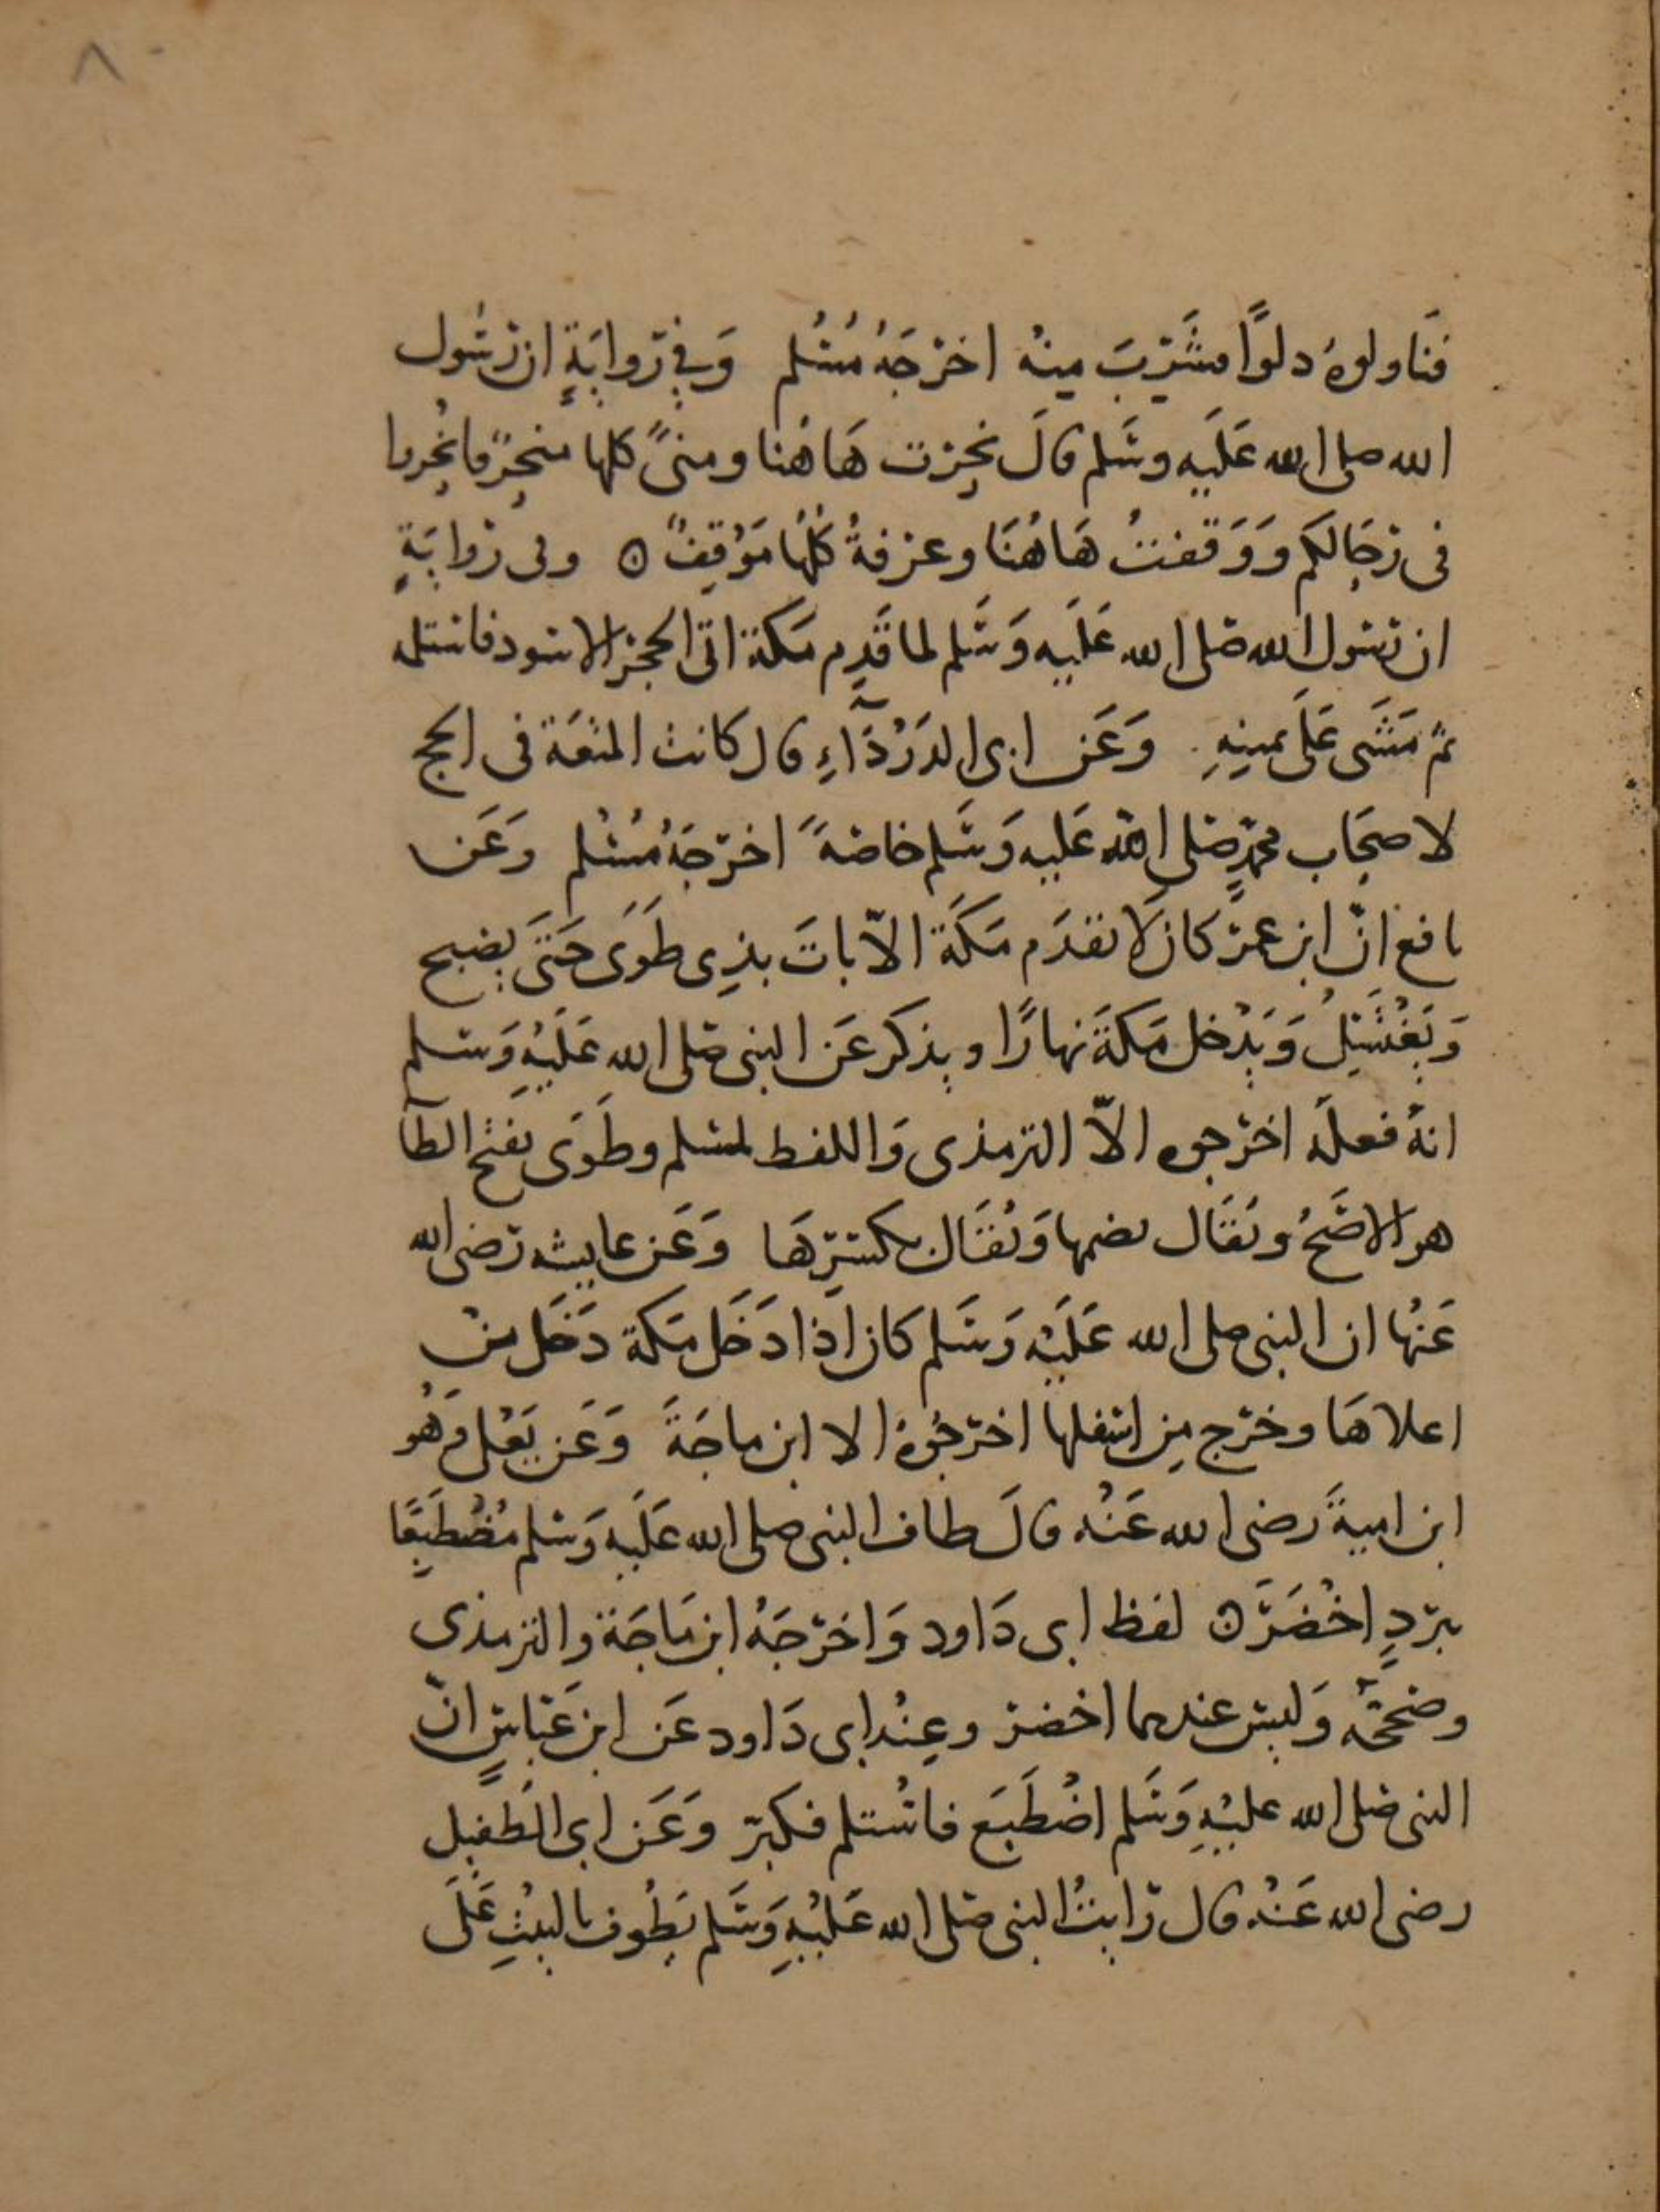 ٨٠
فَنَاولوهُ دلوًا فشَرِبَ مِنهُ اخرَجَهُ مُسْلم وَفي رِوايَةٍ ان رسُول
الله صلى الله عَلَيه وسَلم قالَ نَحَرت هَاهُنا ومنىً كلها منحرٌ فانحُروا
فى رِحَالكم وَوَقفتُ هَاهُنَا وعرفةُ كلُّهَا مَوقِفٌ ه وفى رِوايَةٍ
ان رسُول الله صَلى الله عَلَيه وَسَلم لما قَدِم مَكة اتى الحجر الاسود فاستلمه
ثمّ مَشَى عَلَى يَمينِهِ . وَعَن ابى الدَردَآءِ قال كانت المتعَة فى الحج
لاصحَاب محمّدٍ صَلى الله عَليه وَسَلم خاصَةً اخرَجَهُ مُسْلم وَعَن
نافع انّ ابن عمرَ كان لَا يقدَم مَكَة الاّ باتَ بذِى طَوَى حَتَى يصبح
وَيَغْتَسِلُ وَيَدْخل مَكةَ نهارًا ويذكر عَن النبى صَلى الله عَلَيْهِ وَسلم
انهُ فعلَهُ اخرجوه الاّ الترمذى وَاللفظ لمسلم وطَوَى بفتح الطآ
هو الاصَحُ ويُقَال بضمها وَيُقَال بكسرِهَا وَعَن عايشه رَضى الله
عَنهُا ان النبى صلى الله عَلَيْه وَسَلم كان اذا دَخَل مَكة دَخَل من
اعلاهَا وخرَج مِن اسفلها اخرجُوهُ الا ابن ماجَةَ وَعَن يَعْلى وَهُو
ابن اميةَ رضى الله عَنْه قالَ طاف النبى صلى الله عَلَيه وَسلم مُضْطَبِعًا
ببردٍ اخْضَرَ ه لفظ ابى دَاود وَاخرَجَهُ ابن مَاجَة والترمذى
وصَححَّه وَليسَ عندهما اخضر وعِنْد ابى دَاود عَن ابن عَبّاسٍ انّ
النبى صَلى الله عليْهِ وَسَلم اضْطَبَعَ فاسْتلم فكبرّ وَعَن ابى الطُفيل
رضى الله عَنْه قال رَايتُ النبى صَلى الله عَليْهِ وَسَلم يَطُوف بالبيْتِ عَلَى